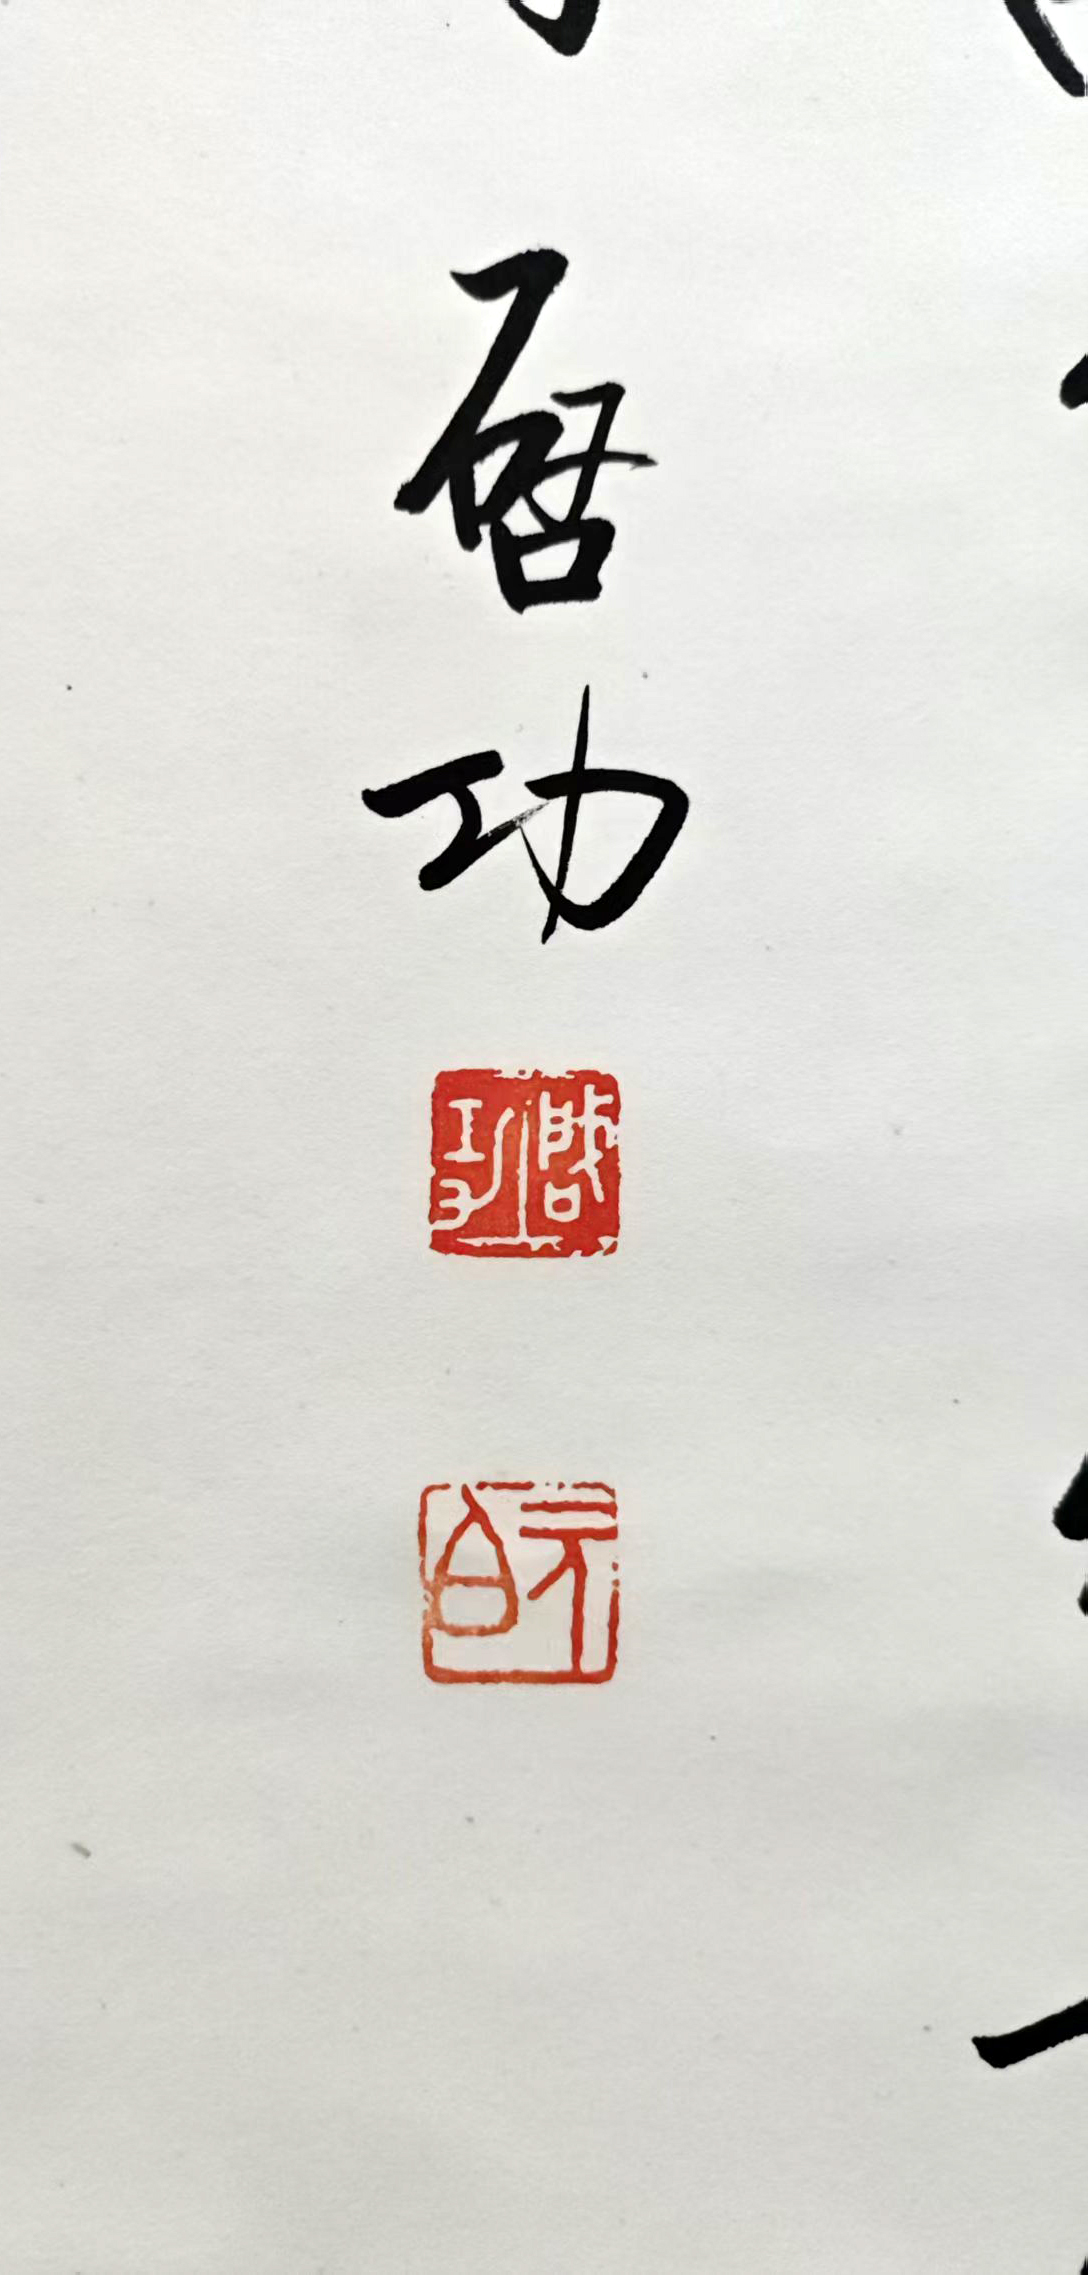 启功
启功
元白